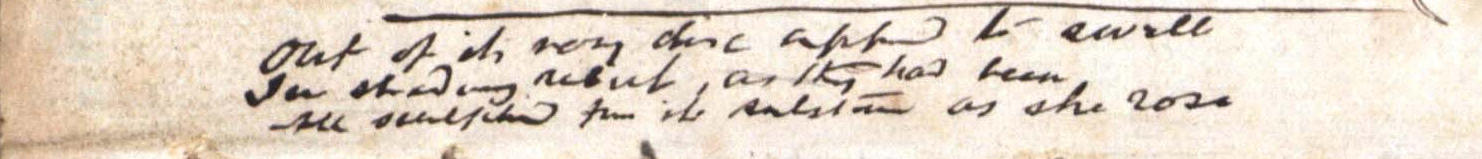 Out of its very disc appeard to swell
In shadowy relief, as they had been
All sculptured from its substance as she rose